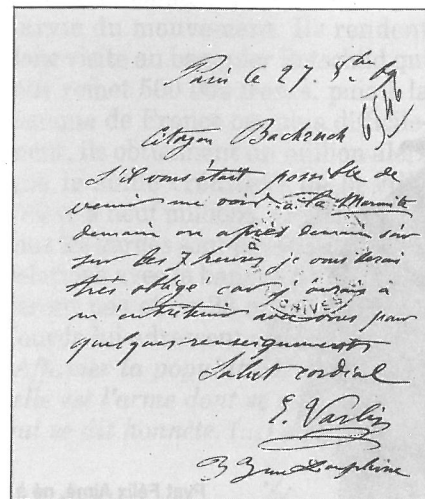 Paris le 27.
6546
Citoyen Bachruch
S'il vous était possible de
venir me voir à la Marmite
demain ou après demain soir
sur les 7 heures je vous serai
très obligé car j'aurais à
m'entretenir avec vous pour
quelques renseignements
Salut cordial
E. Varlin
33 rue Dauphine